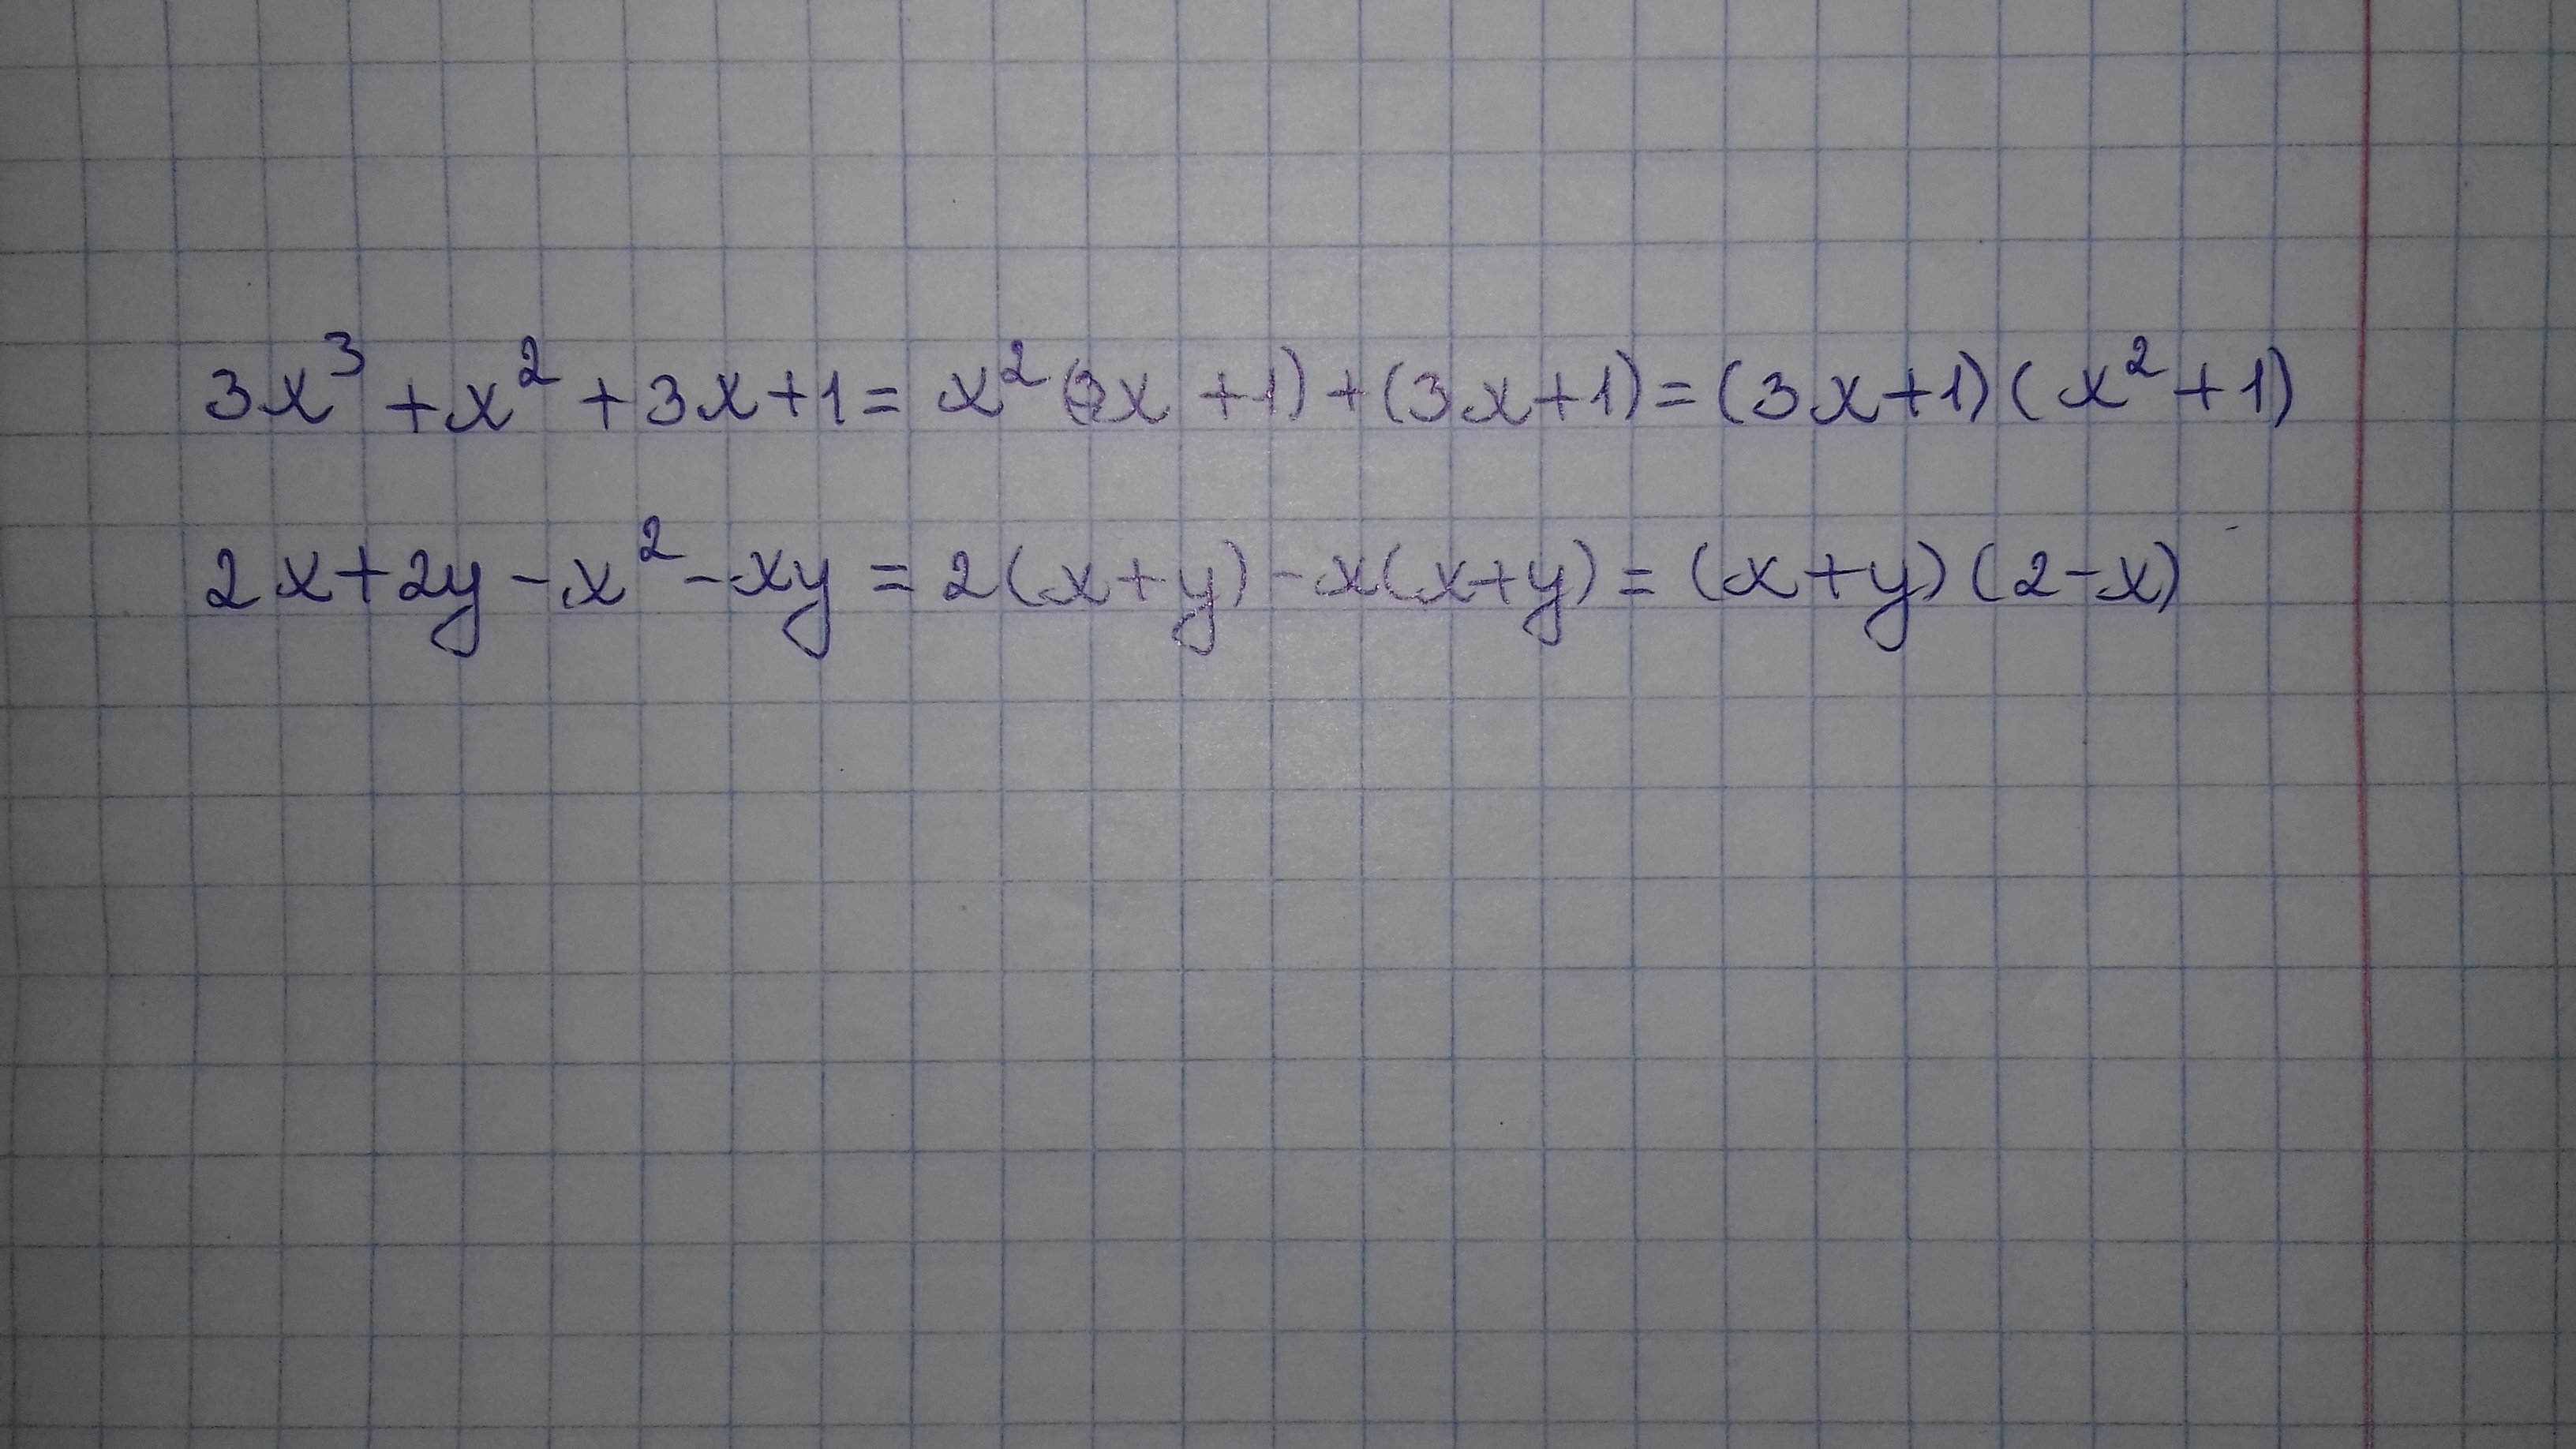 3x³ + x² + 3x + 1 = x² (3x + 1) + (3x + 1) = (3x + 1) (x² + 1)
2x + 2y - x² - xy = 2(x + y) - x(x + y) = (x + y) (2 - x)